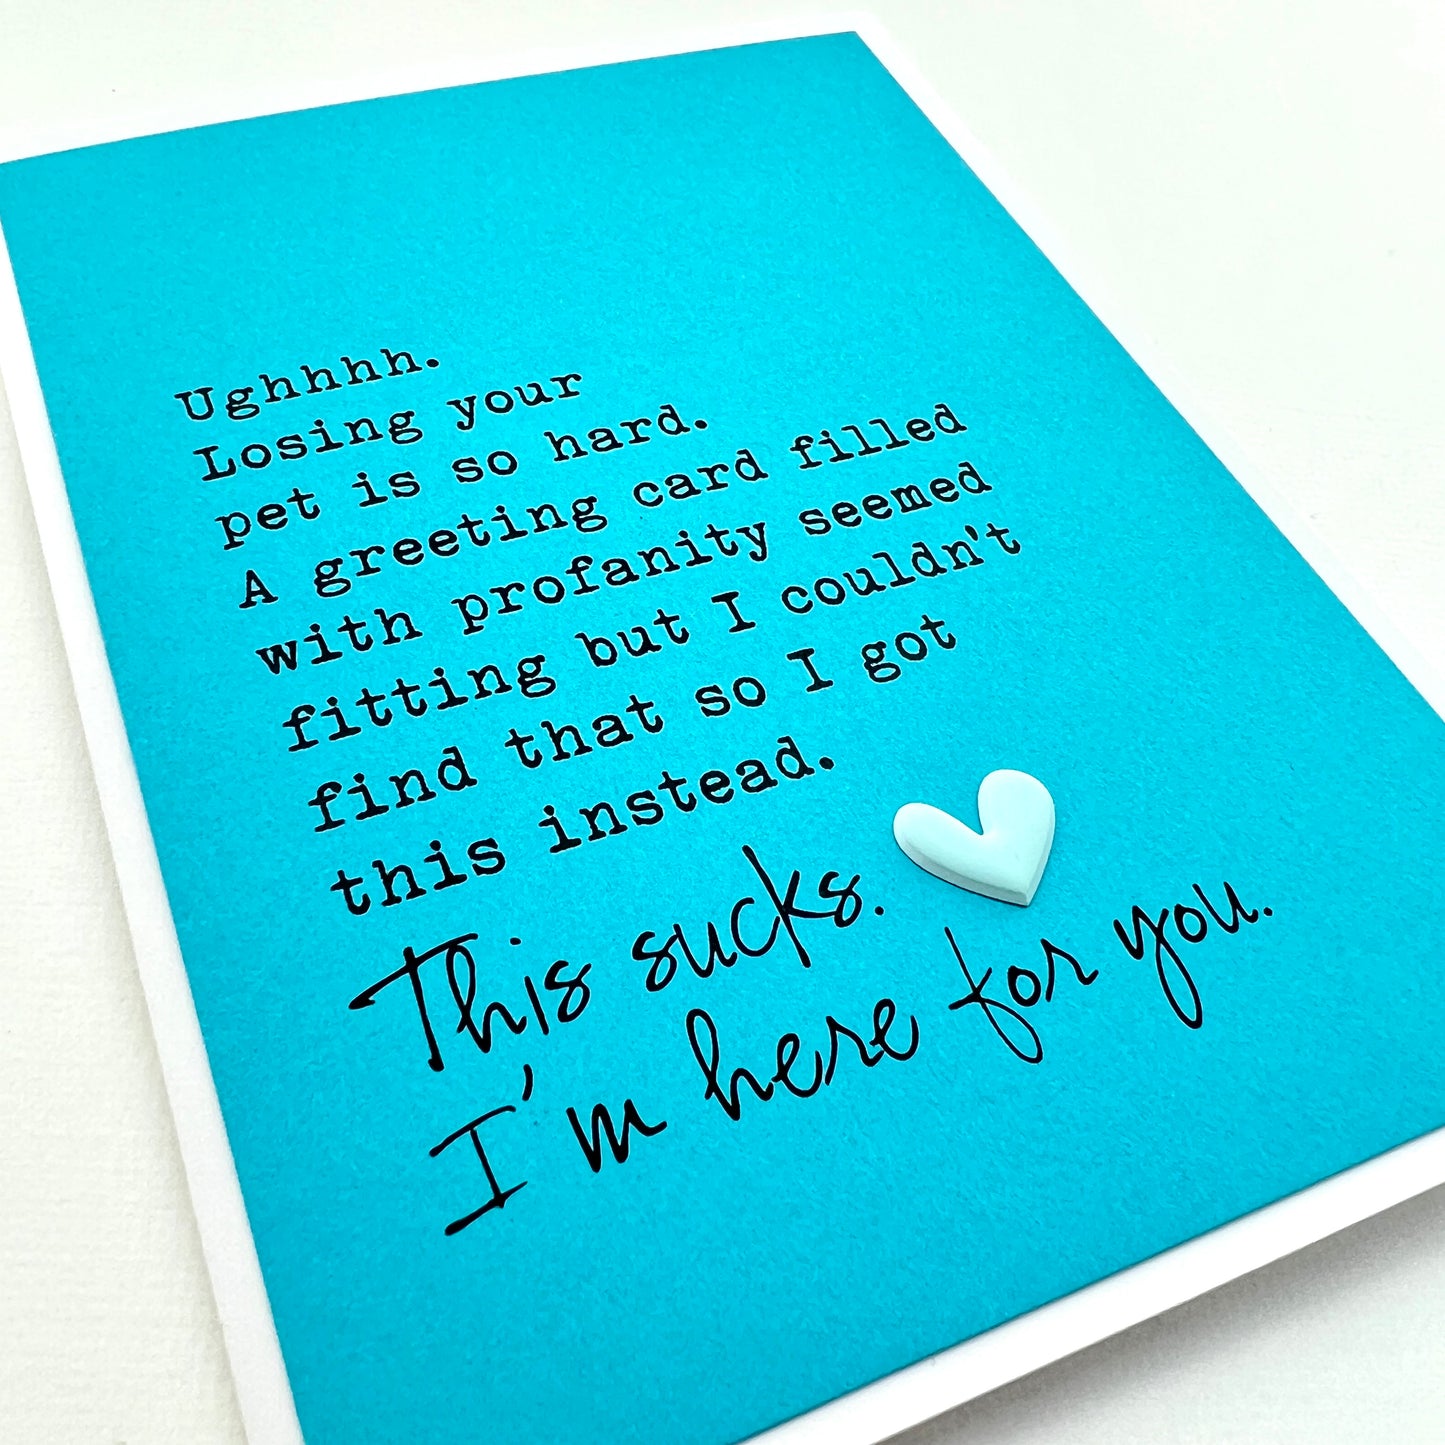 Ughhhh.
Losing your
pet is so hard.
A greeting card filled
with profanity seemed
fitting but I couldn't
find that so I got
this instead.
This sucks.
I'm here for you.